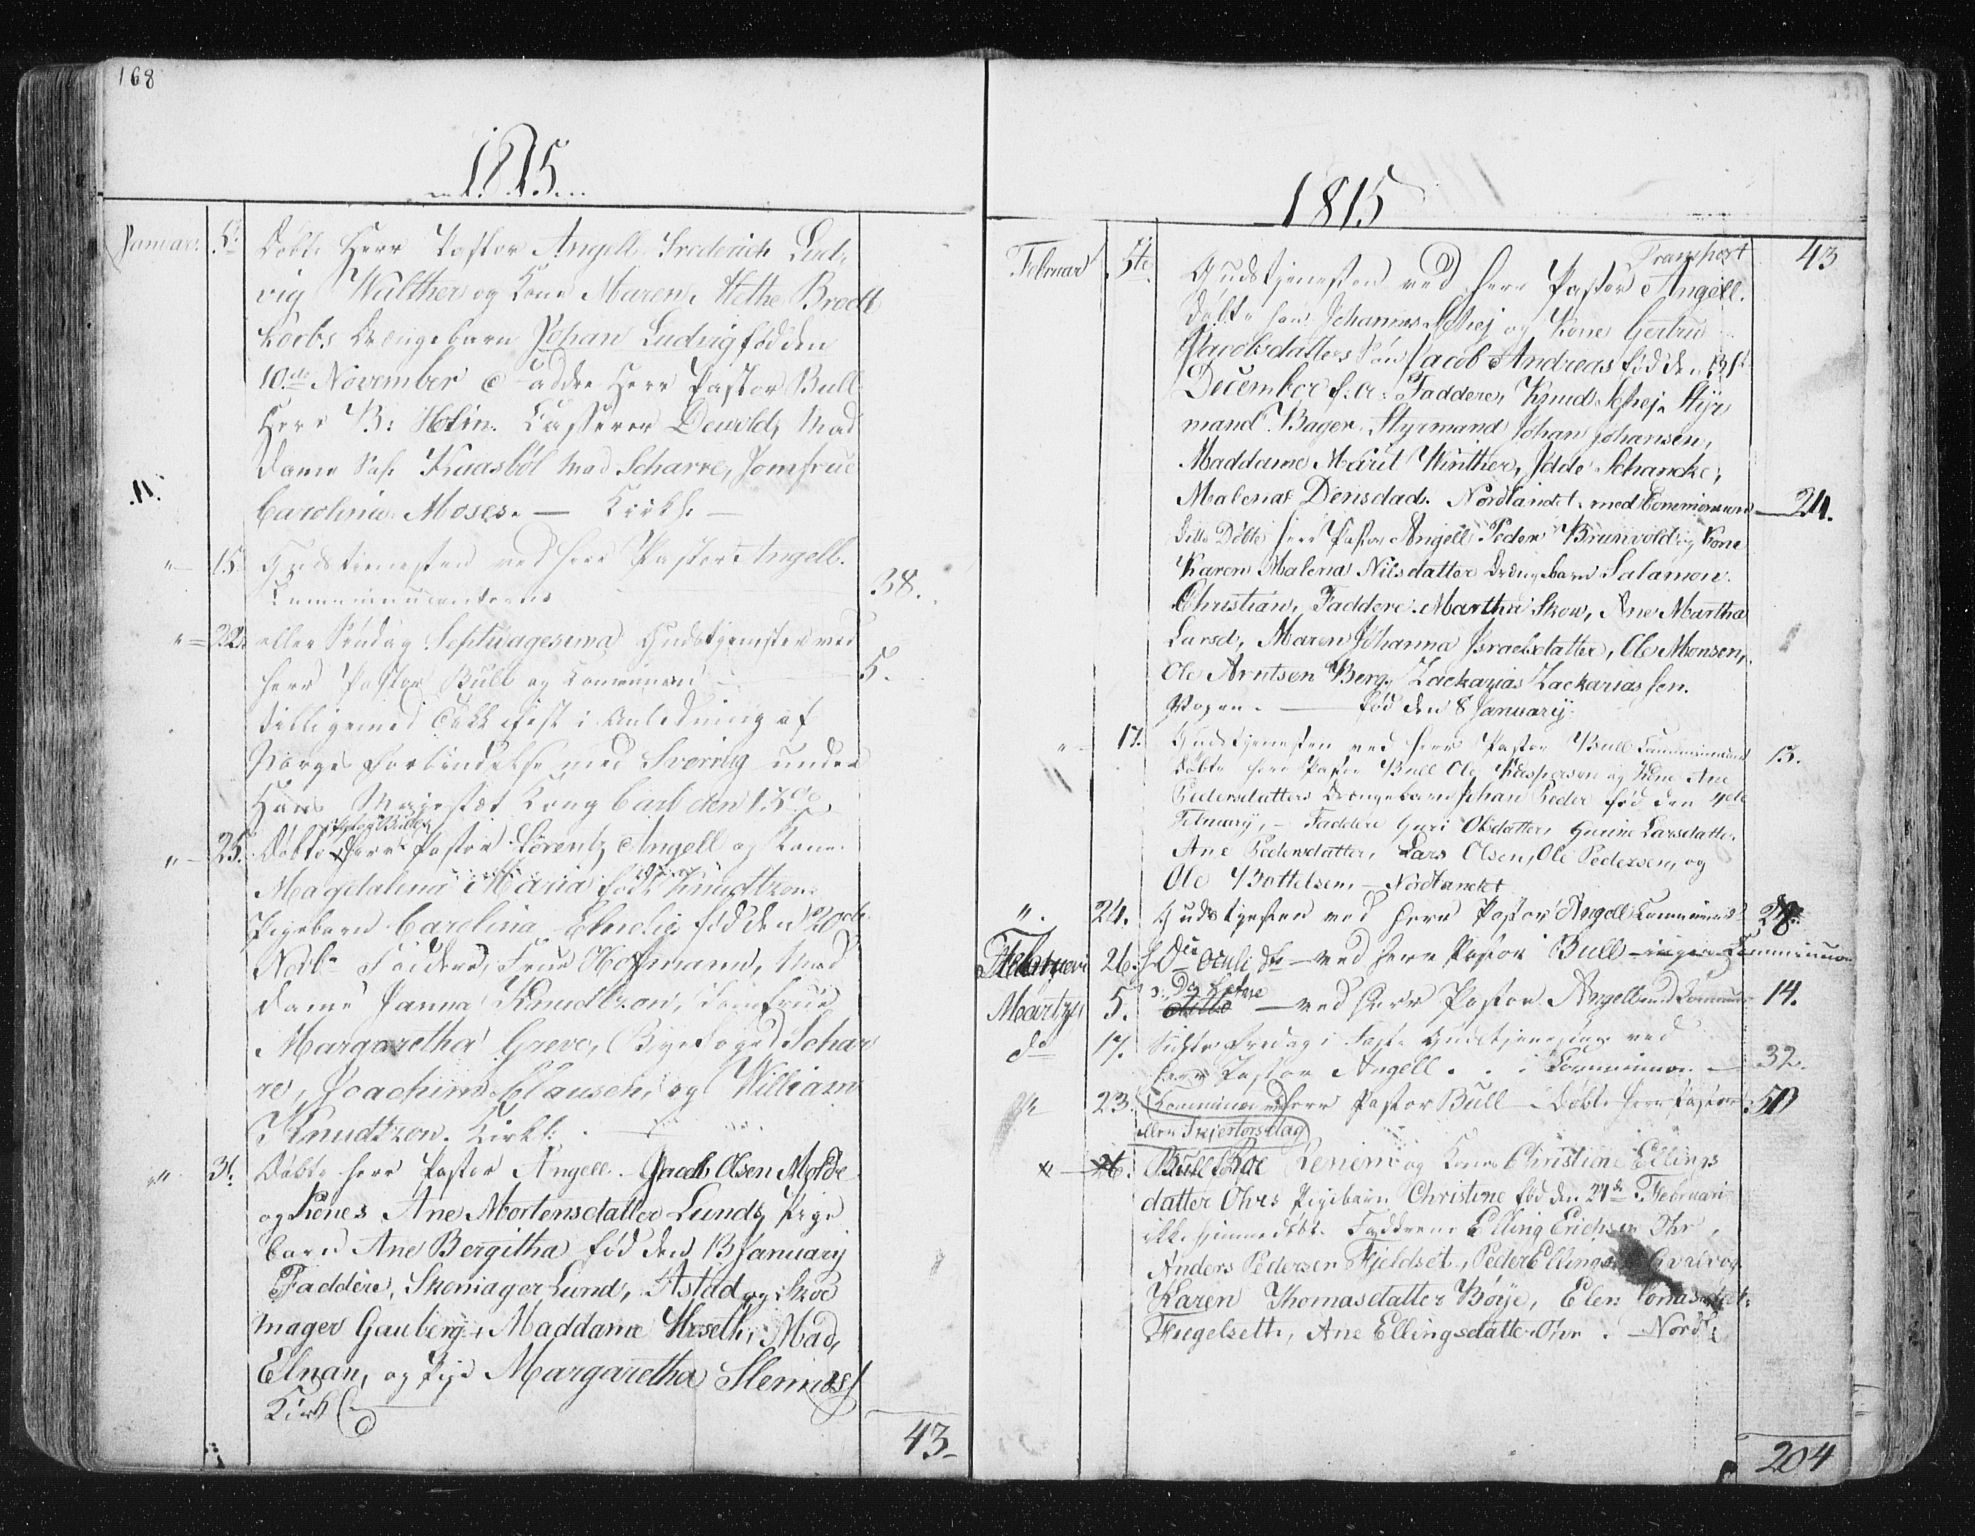 168
1815
Januar 5te Døbte Herr Pastor Angell Frederich Lud-
vig Walther og Kone Maren Methe Brodt
korbs Drengebarn Johan Ludvig fød den
10de November Faddre Herr Pastor Bull
Herr B: Casserer Dewold, Mad
dame Knasbøl Mad Scharre, Jomfrue
Carolina Moses. — Kirk:
" 15. Gudstienesten ved Herr Pastor Angell.
Communicanterne 38.
" 22 eller Søndag Septuagesima Gudstjenesten ved
Herr Pastor Bull og Communion 5.
tilligemed Takkefest i Anledning af
Norges Forbindelse med Sverrig under
Hans Majestæt Kong Carl den 13de
" 25. Døbte Herr Pastor Lorentz Angell og Kone
Magdalena Maria fød Knudtzon
Pigebarn Carolina Emelie fød den 20de
Novbr Faddere, Frue Hoffmann, Mad
dame Janna Knudtzon, Jomfrue
Margaretha Greve, Byefoged Schar
re, Joachim Clausen, og William
Knudtzon. Kirk:
" 31. Døbte Herr Pastor Angell Jacob Olsen Molde
og Kones Ane Mortensdatter Lunds Pige
barn Ane Bergitha fød den 13 January
Faddere, Skomager Lund, Astad og Skoe
mager Gauberg, Maddame Hoseth, Mad,
Elnan, og Pige Margaretha
Kirk
43
1815
Transport 43
Februar 5te Gudstjenesten ved Herr Pastor Angell.
Døbte han Johannes og Kone Gertru
Jacobsdatters Søn Jacob Andreas fød den 31
December f. a. Faddere, Knud Styr
mand Bager, Styrmand Johan Johansen,
Maddame Marit Winther, Idde Schancke,
Malena Densdad. Nordlandet med Communion 24.
Ditto Døbte Herr Pastor Angell Peder Brunvold og Kone
Karen Malena Nilsdatter Drengebarn Salamon
Christian, Faddere Martha Skow, Ane Martha
Larsd, Maren Johanna Israelsdatter, Ole Monsen,
Ole Arntsen Berg, Zackarias Zackariassen.
Vogen. — fød den 8 January
" 17. Gudstjenesten ved Herr Pastor Bull 13.
Døbte Herr Pastor Bull Ole Kaspersen og Kone Ane
Pedersdatters Drengebarn Johan Peder fød den 4de
February, — Faddere Guri Olsdatter, Gurine Larsdatter
Ane Pedersdatter, Lars Olsen, Ole Pedersen, og
Ole Bottelsen, — Nordlandet
" 24. Gudstjesten ved Herr Pastor Angell
26. Oculi ved Herr Pastor Bull ingen Communion
Martz 5. ditto — ved Herr Pastor Angell 14.
do 17. Fredag i Faste Gudstjenesten ved
Herr Pastor Angell . . i Communion 32.
23. Communion ved Herr Pastor Bull Døbte Herr Pastor 50
eller Skjertorsdag
26. Bull og Kone Christiene Ellings
datter Ohrs Pigebarn Christine fød den 24de Februari
ikke hjemmedøbt. Faddrene Elling Erichsen Ohr,
Anders Pedersen Fjeldset, Peder og
Karen Thomasdatter Böye, Elen
Ane Ellingsdatter Ohr. — Nordl:
204